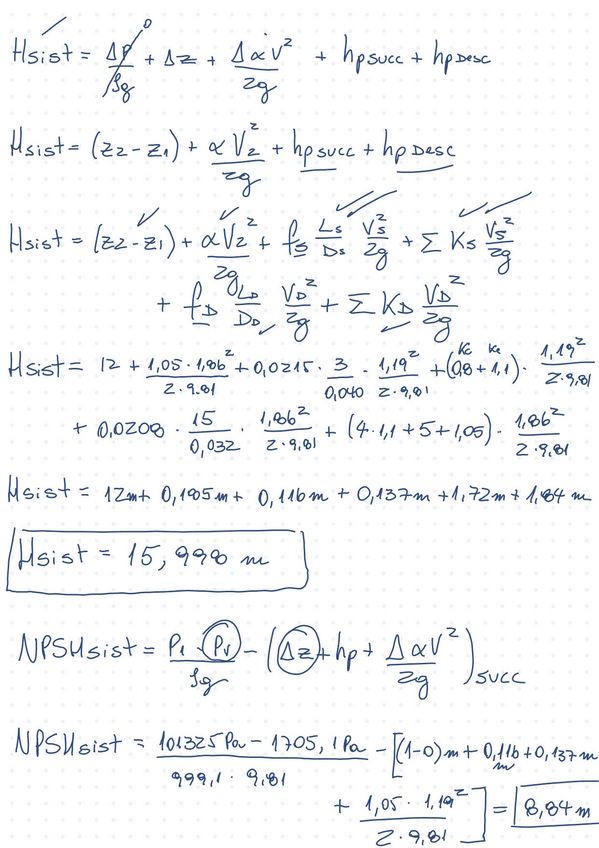 Hsist = ΔP/ρg + Δz + ΔαV²/2g + hp succ + hp Desc
0
Hsist = (z2 - z1) + αV2²/2g + hp succ + hp Desc
Hsist = (z2 - z1) + αV2²/2g + fs Ls/Ds Vs²/2g + Σ Ks Vs²/2g
+ fD LD/DD VD²/2g + Σ KD VD²/2g
Kc Ke
Hsist = 12 + 1,05 · 1,86²/2 · 9.81 + 0,0215 · 3/0,040 · 1,19²/2 · 9,81 + (0,8 + 1,1) · 1,19²/2 · 9,81
+ 0,0208 · 15/0,032 · 1,86²/2 · 9,81 + (4 · 1,1 + 5 + 1,05) · 1,86²/2 · 9,81
Hsist = 12m + 0,185m + 0,116m + 0,137m + 1,72m + 1,84 m
Hsist = 15,998 m
NPSHsist = P1 - Pv/ρg - (Δz + hp + ΔαV²/2g)succ
NPSHsist = 101325 Pa - 1705,1 Pa/999,1 · 9,81 - [(1-0)m + 0,116 m + 0,137m
+ 1,05 · 1,19²/2 · 9,81] = 8,84 m